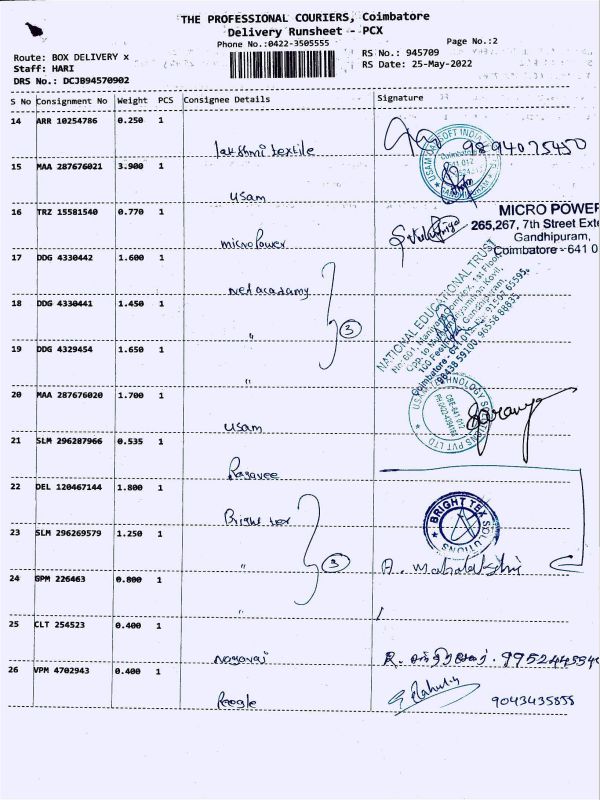 THE PROFESSIONAL COURIERS, Coimbatore
Delivery Runsheet - PCX
Phone No.:0422-3505555
Page No.:2
Route: BOX DELIVERY x
RS No.: 945709
Staff: HARI
RS Date: 25-May-2022
DRS No.: DCJB94570902
S No Consignment No Weight PCS Consignee Details Signature
14 ARR 10254786 0.250 1
lakshmi textile 9894075450
15 MAA 287676021 3.900 1
usam
16 TRZ 15581540 0.770 1
micropower
MICRO POWER
265,267, 7th Street Exte
Gandhipuram,
Coimbatore - 641 0
17 DDG 4330442 1.600 1
Net academy
18 DDG 4330441 1.450 1
" 3
NATIONAL EDUCATIONAL TRUST
19 DDG 4329454 1.650 1
"
20 MAA 287676020 1.700 1
usam
21 SLM 296287966 0.535 1
22 DEL 120467144 1.800 1
Bright tex
BRIGHT TEX SOLUTIONS
23 SLM 296269579 1.250 1
" 3
A. Mahalakshmi
24 GPM 226463 0.800 1
"
25 CLT 254523 0.400 1
26 VPM 4702943 0.400 1
9043435858